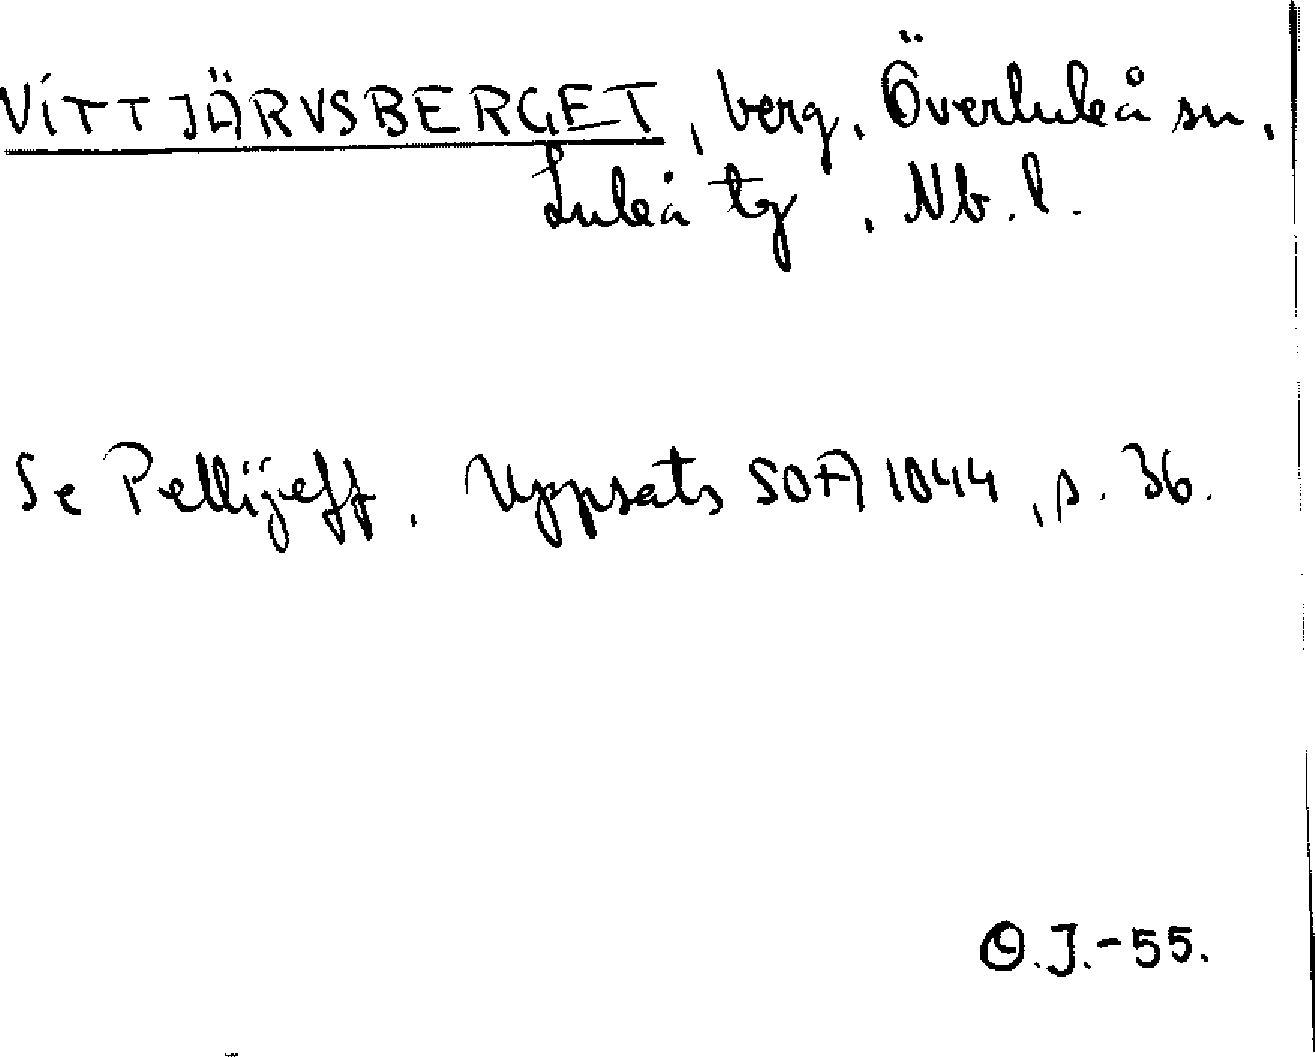 VITTJÄRVSBERGET, berg, Överluleå sn,
Luleå tg, Nb.l.
Se Pellijeff, Uppsats SOFA 1044, s. 36.
O.J.-55.